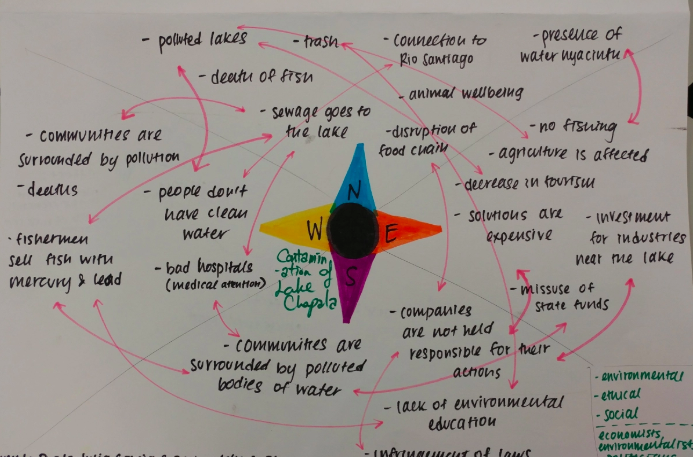 - polluted lakes
- trash
- connection to
Rio Santiago
- presence of
water hyacinth
- death of fish
- animal wellbeing
- sewage goes to
the lake
- disruption of
food chain
- no fishing
- communities are
surrounded by pollution
- agriculture is affected
- deaths
- people don't
have clean
water
- decrease in tourism
- solutions are
expensive
- investment
for industries
near the lake
- fishermen
sell fish with
mercury & lead
- bad hospitals
(medical atention)
N
W
E
S
Contamin
-ation of
Lake
Chapala
- missuse of
state funds
- companies
are not held
responsible for their
actions
- communities are
surrounded by polluted
bodies of water
- lack of environmental
education
- infringement of laws
- environmental
- ethical
- social
economists,
environmentalist